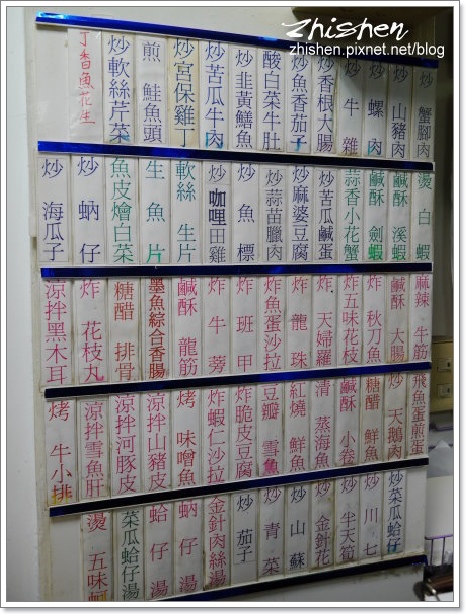 zhishen
zhishen.pixnet.net/blog
炒蟹腳肉
炒山豬肉
炒螺肉
炒牛雜
炒香根大腸
炒魚香茄子
酸白菜牛肚
炒韭黃鱔魚
炒苦瓜牛肉
炒宮保雞丁
煎鮭魚頭
炒軟絲芹菜
丁香魚花生
燙白蝦
鹹酥溪蝦
鹹酥劍蝦
蒜香小花蟹
炒苦瓜鹹蛋
炒麻婆豆腐
炒蒜苗臘肉
炒魚標
炒咖哩田雞
軟絲生片
生魚片
魚皮燴白菜
炒蚋仔
炒海瓜子
麻辣牛筋
鹹酥大腸
炸秋刀魚
炸五味花枝
炸天婦羅
炸龍珠
炸魚蛋沙拉
炸班甲
炸牛蒡
鹹酥龍筋
墨魚綜合香腸
糖醋排骨
炸花枝丸
涼拌黑木耳
飛魚蛋煎蛋
炒天鵝肉
糖醋鮮魚
鹹酥小卷
清蒸海魚
紅燒鮮魚
豆瓣雪魚
炸脆皮豆腐
炸蝦仁沙拉
烤味噌魚
涼拌山豬皮
涼拌河豚皮
涼拌雪魚肝
烤牛小排
炒菜瓜蛤仔
炒川七
炒半天筍
炒金針花
炒山蘇
炒青菜
炒茄子
金針肉絲湯
蚋仔湯
蛤仔湯
菜瓜蛤仔湯
燙五味蚵